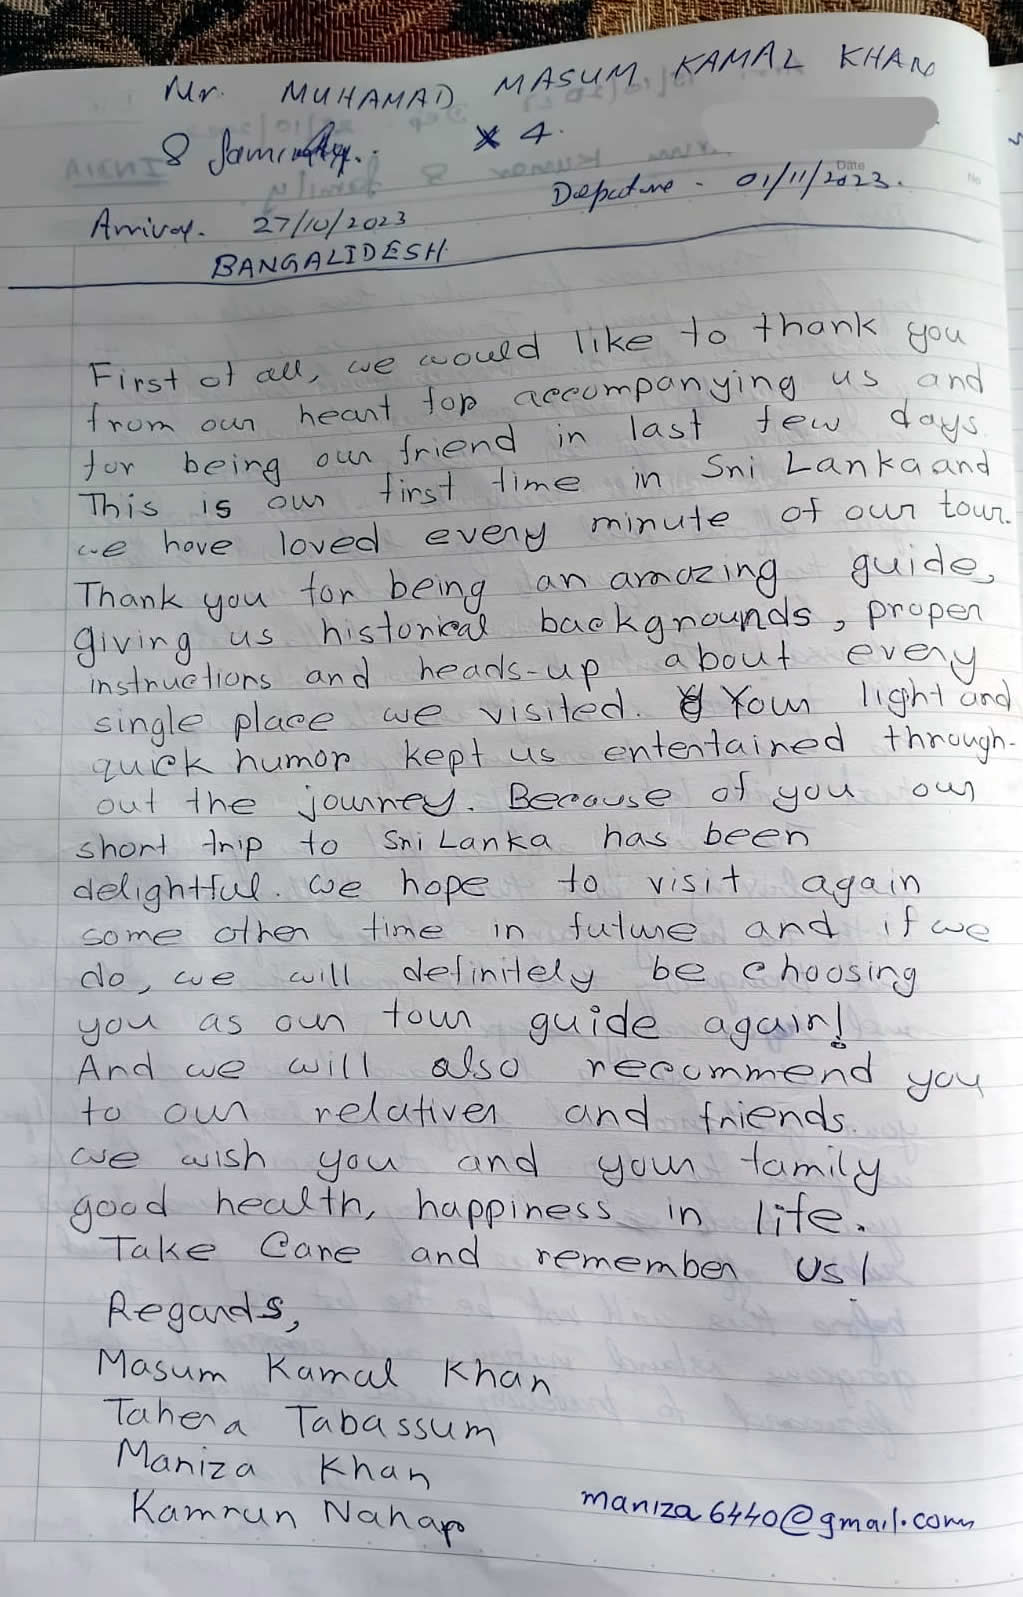 Mr. MUHAMAD MASUM KAMAL KHAN
& family. x 4.
Date
No
Arrival. 27/10/2023 Departure - 01/11/2023.
BANGALIDESH
First of all, we would like to thank you
from our heart for accompanying us and
for being our friend in last few days.
This is our first time in Sri Lanka and
we have loved every minute of our tour.
Thank you for being an amazing guide,
giving us historical backgrounds, proper
instructions and heads-up about every
single place we visited. Your light and
quick humor kept us entertained through-
out the journey. Because of you our
short trip to Sri Lanka has been
delightful. We hope to visit again
some other time in future and if we
do, we will definitely be choosing
you as our tour guide again!
And we will also recommend you
to our relatives and friends.
We wish you and your family
good health, happiness in life.
Take Care and remember us!
Regards,
Masum Kamal Khan
Tahera Tabassum
Maniza Khan
Kamrun Nahar
maniza6440@gmail.com